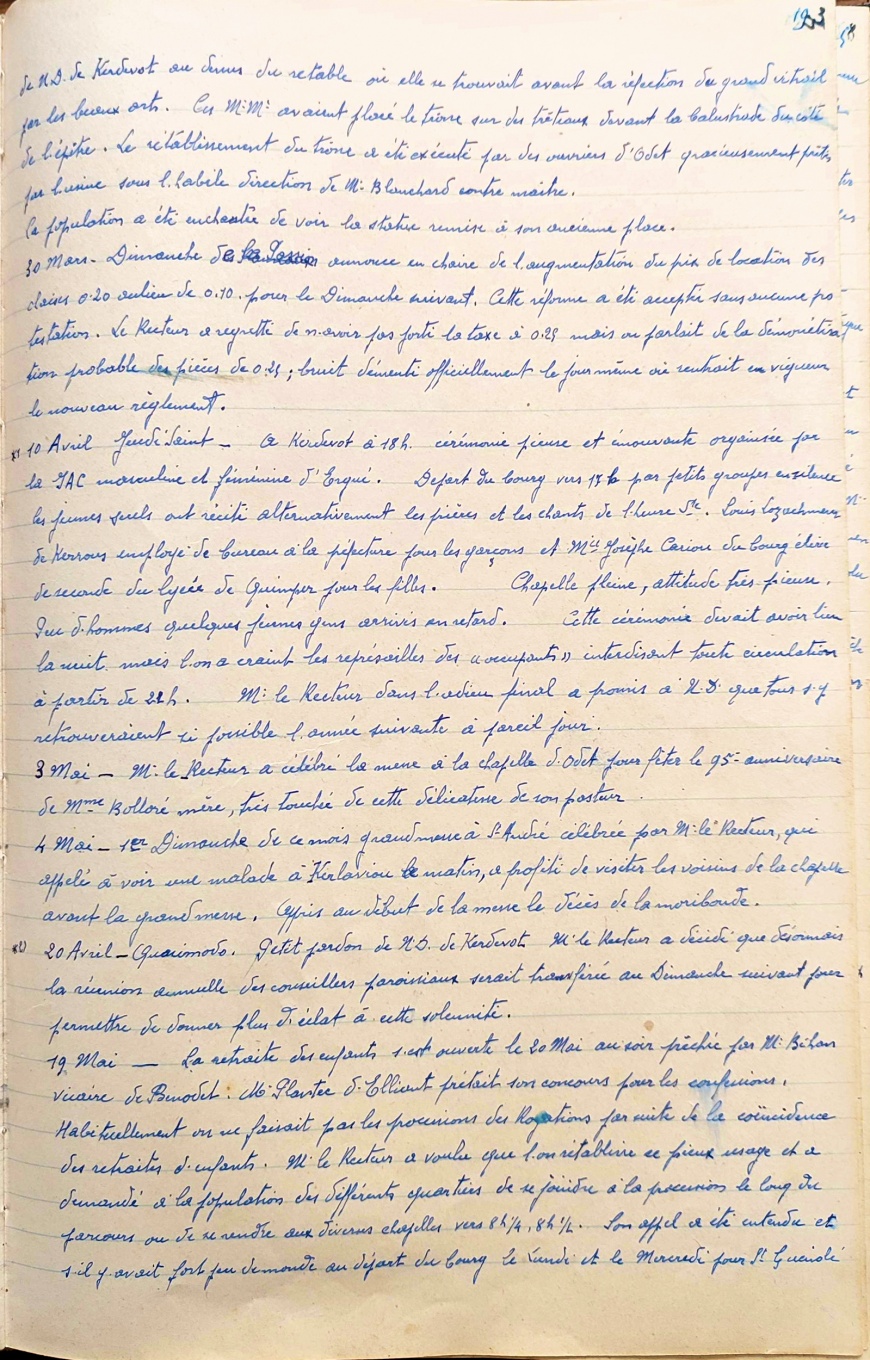 193
de N.D. de Kerdévot au dessus du retable où elle se trouvait avant la réfection du grand vitrail
par les beaux arts. Ces M.M.rs avaient placé le trône sur des tréteaux devant la balustrade du côté
de l'épître. Le rétablissement du trône a été exécuté par des ouvriers d'Odet gracieusement prêtés
par l'usine sous l'habile direction de Mr Blanchard contre maître.
La population a été enchantée de voir la statue remise à son ancienne place.
30 Mars - Dimanche de la Passion annonce en chaire de l'augmentation du prix de location des
chaises 0.20 au lieu de 0.10. pour le Dimanche suivant. Cette réforme a été acceptée sans aucune pro-
testation. Le Recteur a regretté de n'avoir pas porté la taxe à 0.25 mais on parlait de la démonétisa-
tion probable des pièces de 0.25 ; bruit démenti officiellement le jour même où rentrait en vigueur
le nouveau règlement.
10 Avril Jeudi Saint - A Kerdévot à 18h. cérémonie pieuse et émouvante organisée par
la JAC masculine et féminine d'Ergué. Départ du bourg vers 17h par petits groupes en silence
les jeunes seuls ont récité alternativement les prières et les chants de l'heure Ste. Louis Lozachmeur
de Kerrous employé de bureau à la préfecture pour les garçons et Mlle Josèphe Cariou du bourg élève
de seconde du lycée de Quimper pour les filles. Chapelle pleine, attitude très pieuse.
Peu d'hommes quelques jeunes gens arrivés en retard. Cette cérémonie devait avoir lieu
la nuit mais l'on a craint les représailles des «occupants» interdisant toute circulation
à partir de 22h. Mr le Recteur dans l'adieu final a promis à N.D. que tous s'y
retrouveraient si possible l'année suivante à pareil jour.
3 Mai - Mr le Recteur a célébré la messe à la chapelle d'Odet pour fêter le 95e anniversaire
de Mme Bolloré mère, très touchée de cette délicatesse de son pasteur.
4 Mai - 1er Dimanche de ce mois grand messe à St André célébrée par Mr le Recteur, qui
appelé à voir une malade à Kerlaviou le matin, a profité de visiter les voisins de la chapelle
avant la grand messe. Appris au début de la messe le décès de la moribonde.
20 Avril - Quasimodo. Petit pardon de N.D. de Kerdévot Mr le Recteur a décidé que désormais
la réunion annuelle des conseillers paroissiaux serait transférée au Dimanche suivant pour
permettre de donner plus d'éclat à cette solennité.
19 Mai - La retraite des enfants s'est ouverte le 20 Mai au soir prêchée par Mr Bihan
vicaire de Benodet. Mr Plantec d'Elliant prêtait son concours pour les confessions.
Habituellement on ne faisait pas les processions des Rogations par suite de la coïncidence
des retraites d'enfants. Mr le Recteur a voulu que l'on rétablisse ce pieux usage et a
demandé à la population des différents quartiers de se joindre à la procession le long du
parcours ou de se rendre aux diverses chapelles vers 8h 1/4, 8h 1/2. Son appel a été entendu et
s'il y avait fort peu de monde au départ du bourg le Lundi et le Mercredi pour St Guénolé